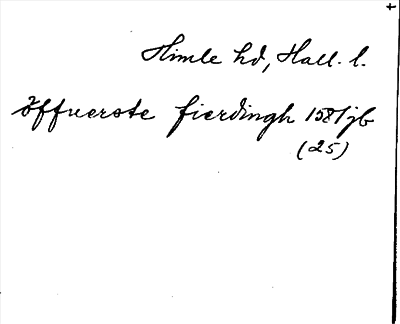 Himle hd, Hall. l.
öffuerste fierdingh 1581 jb
(25)